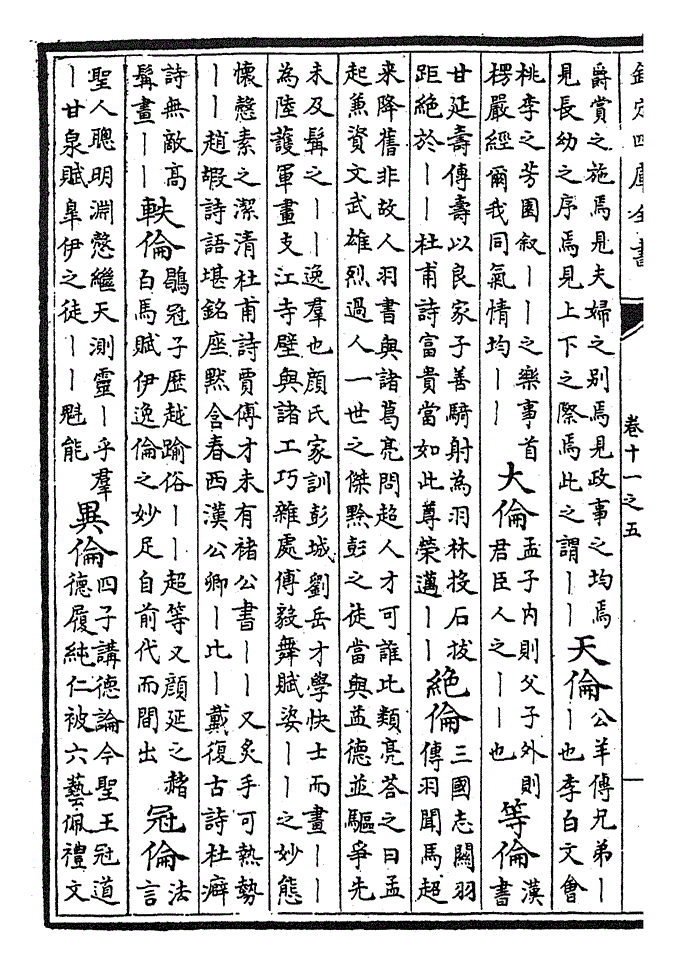 欽定四庫全書
卷十一之五
爵賞之施焉見夫婦之别焉見政事之均焉
見長幼之序焉見上下之際焉此之謂｜｜
天倫
公羊傳兄弟｜
｜也李白文會
桃李之芳園叙｜｜之樂事首
楞嚴經爾我同氣情均｜｜
大倫
孟子内則父子外則
君臣人之｜｜也
等倫
漢
書
甘延壽傳壽以良家子善騎射為羽林投石拔
距絶於｜｜杜甫詩富貴當如此尊榮邁｜｜
絶倫
三國志關羽
傳羽聞馬超
来降舊非故人羽書與諸葛亮問超人才可誰比類亮荅之曰孟
起兼資文武雄烈過人一世之傑黥彭之徒當與益德並驅爭先
未及髯之｜｜逸羣也顔氏家訓彭城劉岳才學快士而畫｜｜
為陸護軍畫支江寺壁與諸工巧雜處傅毅舞賦姿｜｜之妙態
懷慤素之潔清杜甫詩賈傅才未有禇公書｜｜又炙手可熱勢
｜｜趙嘏詩語堪銘座黙含春西漢公卿｜比｜｜戴復古詩杜癖
詩無敵髙
髯畫｜｜
軼倫
鶡冠子歴越踰俗｜｜超等又顔延之赭
白馬賦伊逸倫之妙足自前代而間出
冠倫
法
言
聖人聰明淵懿繼天測靈｜乎羣
｜甘泉賦臯伊之徒｜｜魁能
異倫
四子講德論今聖王冠道
德履純仁被六藝佩禮文